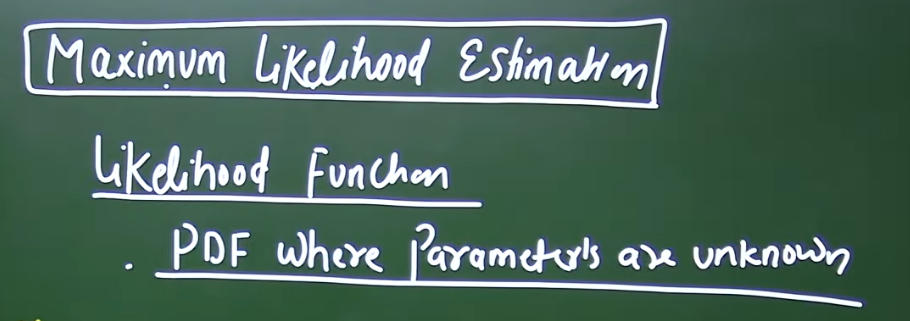 Maximum Likelihood Estimation
Likelihood Function
. PDF where Parameter's are unknown